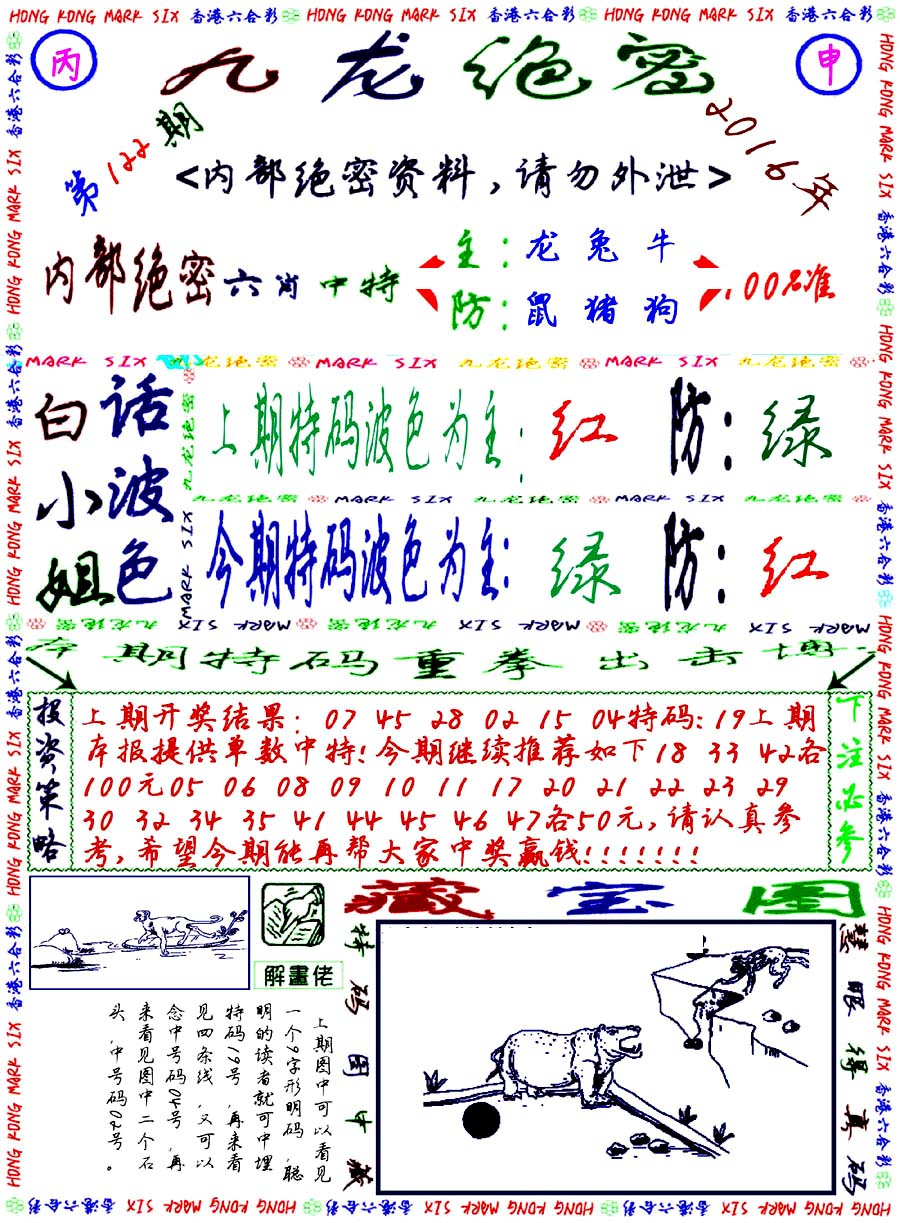 HONG KONG MARK SIX 香港六合彩 HONG KONG MARK SIX 香港六合彩 HONG KONG MARK SIX 香港六合彩
丙
九龙绝密
申
第122期
2016年
<内部绝密资料,请勿外泄>
内部绝密六肖中特
主:龙兔牛
防:鼠猪狗
MARK SIX 九龙绝密 MARK SIX 九龙绝密 MARK SIX 九龙绝密
白话
小波
姐色
上期特码波色为主:红 防:绿
九龙绝密 MARK SIX 九龙绝密 MARK SIX 九龙绝密
今期特码波色为主:绿 防:红
MARK SIX 九龙绝密 MARK SIX 九龙绝密 MARK SIX 九龙绝密
期特码重拳出击
投资策略
上期开奖结果:07 45 28 02 15 04特码:19上期
本报提供单数中特!今期继续推荐如下18 33 42各
100元05 06 08 09 10 11 17 20 21 22 23 29
30 32 34 35 41 44 45 46 47各50元,请认真参
考,希望今期能再帮大家中奖赢钱!!!!!!!
下注必参
藏宝图
解畫佬
上期图中可以看见
一个9字形明码,聪
明的读者就可中埋
特码19号,再来看
见四条线,又可以
念中号码04号,再
来看见图中二个石
头,中号码02号。
特码图中藏
慧眼得真码
HONG KONG MARK SIX 香港六合彩 HONG KONG MARK SIX 香港六合彩 HONG KONG MARK SIX 香港六合彩